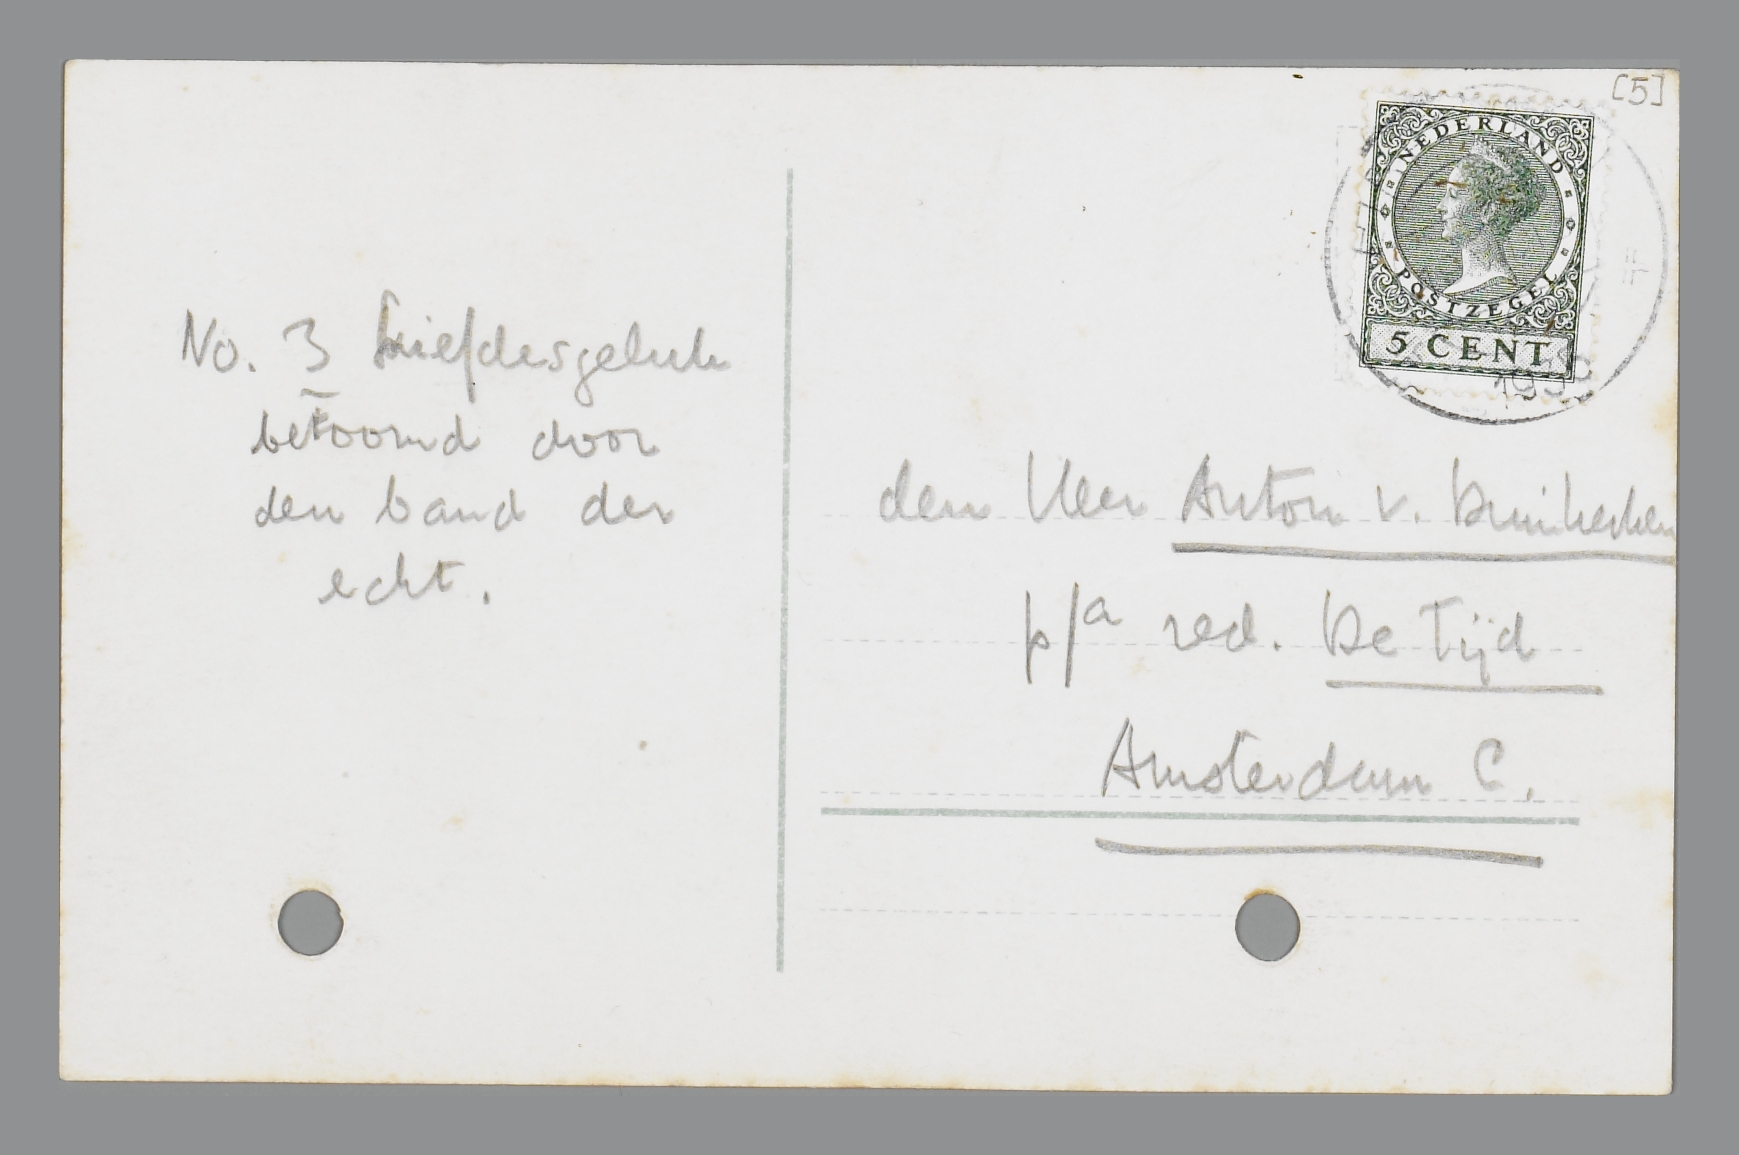 [5]
NEDERLAND
POSTZEGEL
5 CENT
No. 3 Liefdesgeluk
betoomd door
den band der
echt.
den Heer Anton v. Duinkerken
p/a red. De Tijd
Amsterdam C.